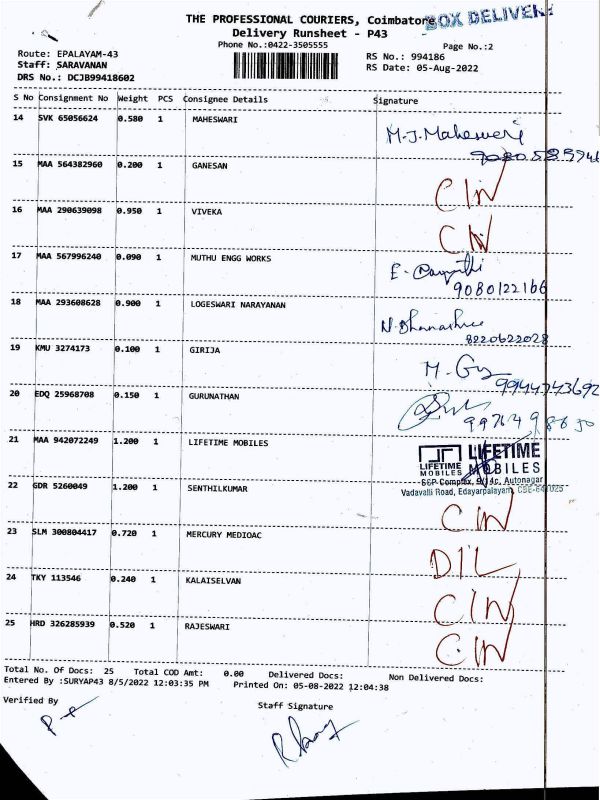 THE PROFESSIONAL COURIERS, Coimbatore BOX DELIVERY
Delivery Runsheet - P43
Phone No.:0422-3505555 Page No.:2
Route: EPALAYAM-43 RS No.: 994186
Staff: SARAVANAN RS Date: 05-Aug-2022
DRS No.: DCJB99418602
S No Consignment No Weight PCS Consignee Details Signature
14 SVK 65056624 0.580 1 MAHESWARI M.J.Maheswari
15 MAA 564382960 0.200 1 GANESAN CIN
16 MAA 290639098 0.950 1 VIVEKA CN
17 MAA 567996240 0.090 1 MUTHU ENGG WORKS E.
9080122166
18 MAA 293608628 0.900 1 LOGESWARI NARAYANAN N.Dhanashree
8220622028
19 KMU 3274173 0.100 1 GIRIJA M.
9944743692
20 EDQ 25968708 0.150 1 GURUNATHAN
21 MAA 942072249 1.200 1 LIFETIME MOBILES LIFETIME MOBILES LIFETIME MOBILES
SGP Complex, 9/14c, Autonagar
Vadavalli Road, Edayarpalayam, CBE-641025
22 GDR 5260049 1.200 1 SENTHILKUMAR CIN
23 SLM 300804417 0.720 1 MERCURY MEDIOAC DIL
24 TKY 113546 0.240 1 KALAISELVAN CIN
25 HRD 326285939 0.520 1 RAJESWARI CIN
Total No. Of Docs: 25 Total COD Amt: 0.00 Delivered Docs: Non Delivered Docs:
Entered By :SURYAP43 8/5/2022 12:03:35 PM Printed On: 05-08-2022 12:04:38
Verified By Staff Signature